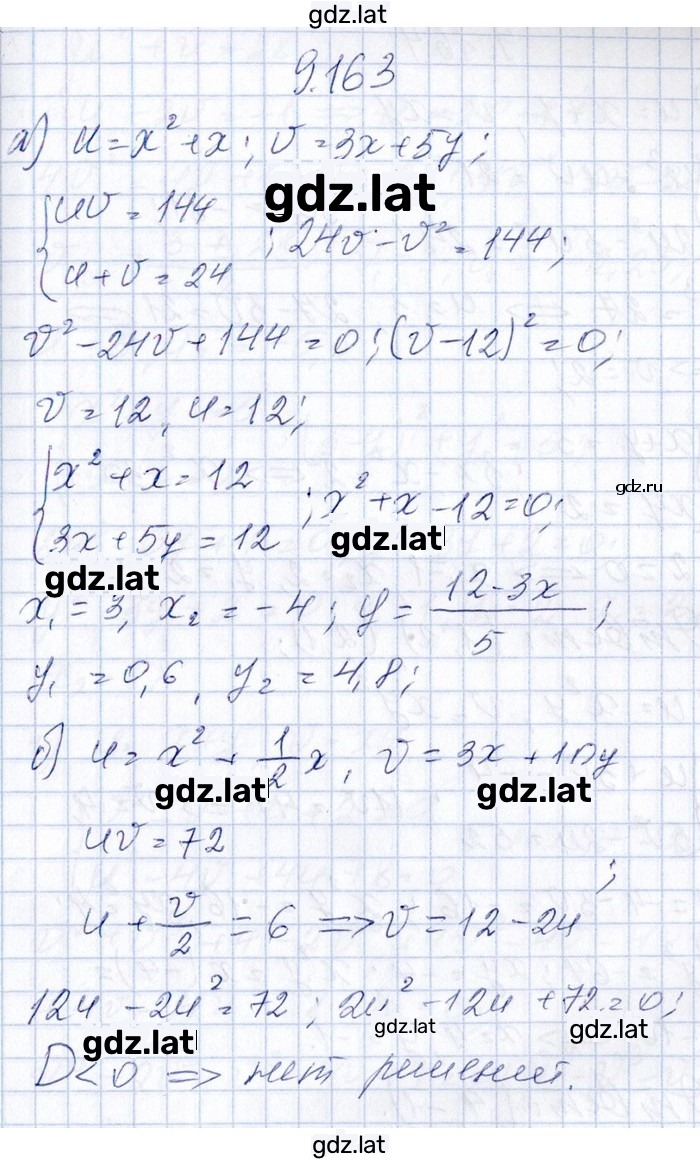 gdz.lat
9.163
а) u = x² + x; v = 3x + 5y;
gdz.lat
{ uv = 144
u + v = 24 ; 24v - v² = 144;
v² - 24v + 144 = 0; (v - 12)² = 0;
v = 12, u = 12;
gdz.ru
{ x² + x = 12
3x + 5y = 12 ; x² + x - 12 = 0;
gdz.lat
gdz.lat
x₁ = 3, x₂ = -4; y = (12 - 3x)/5;
y₁ = 0,6, y₂ = 4,8;
б) u = x² + 1/2 x, v = 3x + 10y
gdz.lat gdz.lat
uv = 72
;
u + v/2 = 6 => v = 12 - 2u
12u - 2u² = 72; 2u² - 12u + 72 = 0;
gdz.lat gdz.lat gdz.lat
D < 0 => нет решений.
gdz.lat